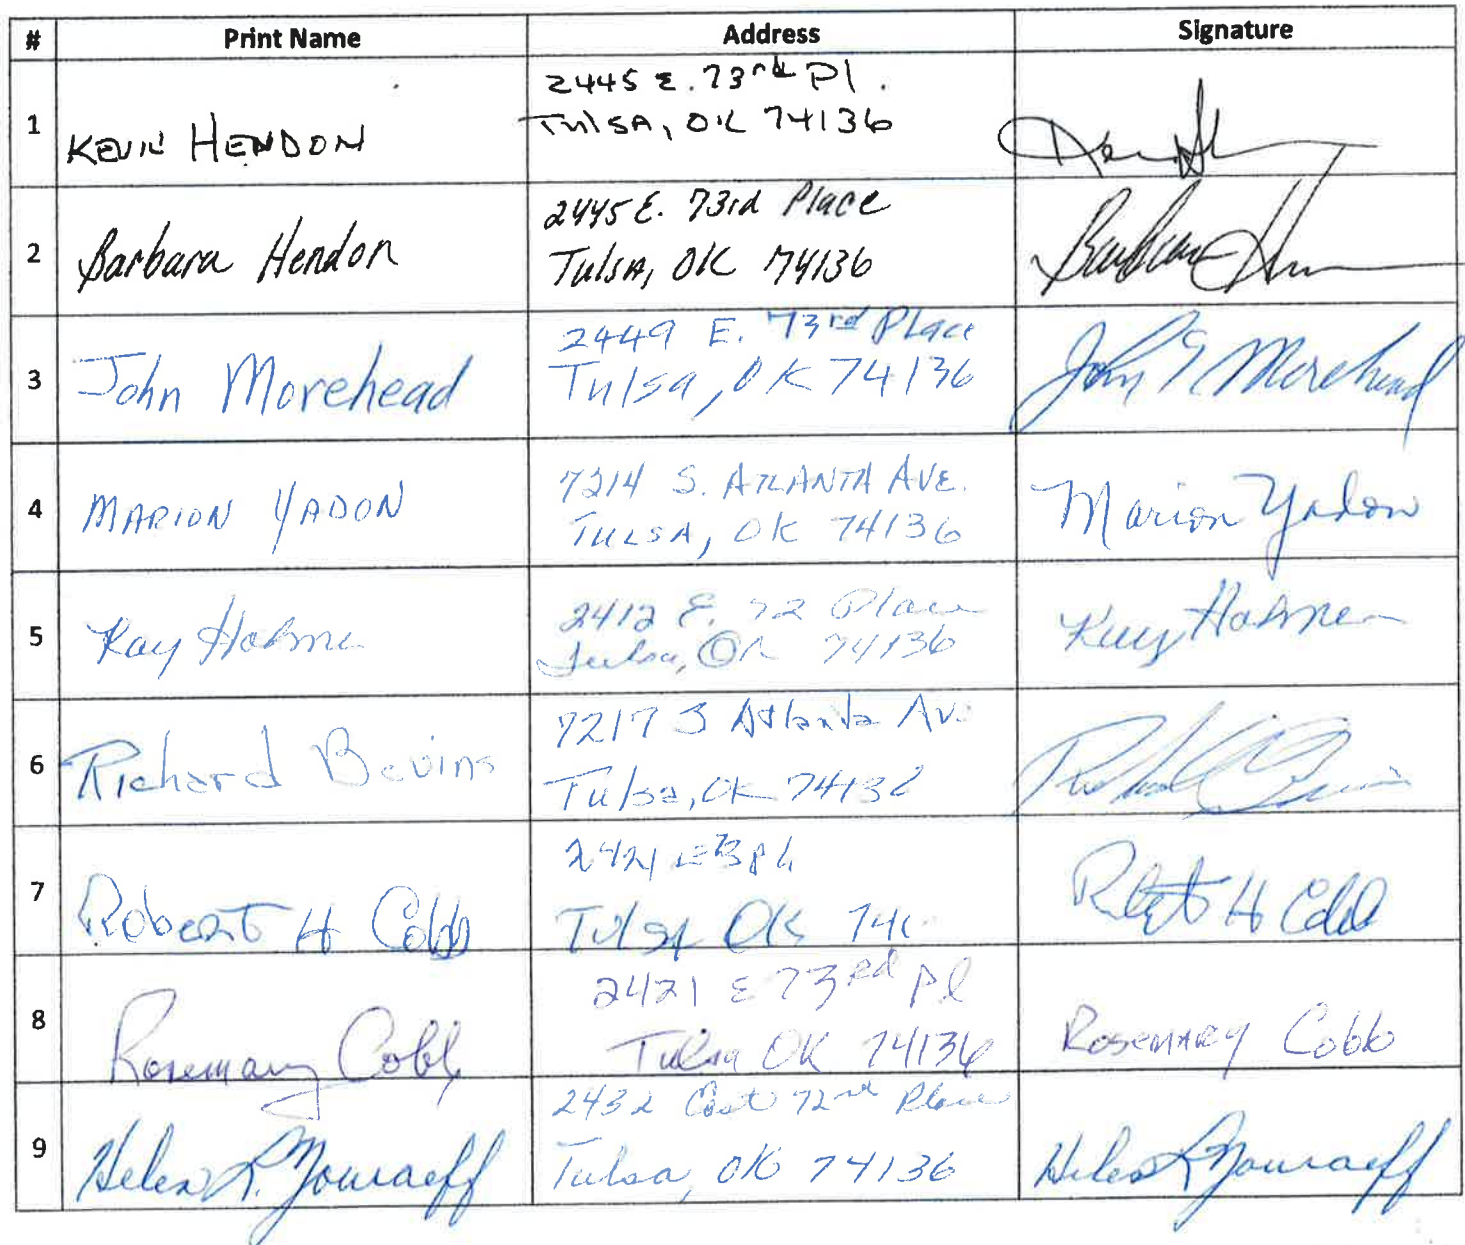 # Print Name Address Signature
1 KEVIN HENDON
2445 E. 73rd Pl.
Tulsa, OK 74136
2 Barbara Hendon
2445 E. 73rd Place
Tulsa, OK 74136
Barbara
3 John Morehead
2449 E. 73rd Place
Tulsa, OK 74136
John E Morehead
4 MARION YADON
7214 S. ATLANTA AVE.
TULSA, OK 74136
Marion Yadon
5 Kay
2412 E. 72 Place
Tulsa, OK 74136
Kay
6 Richard Bevins
7217 S Atlanta Av.
Tulsa, OK 74136
7 Robert H Cobb
2421 E
Tulsa OK
Robert H Cobb
8 Rosemary Cobb
2421 E 73rd Pl
Tulsa OK 74136
Rosemary Cobb
9 Helen L. Youraeff
2432 East 72nd Place
Tulsa, OK 74136
Helen L Youraeff